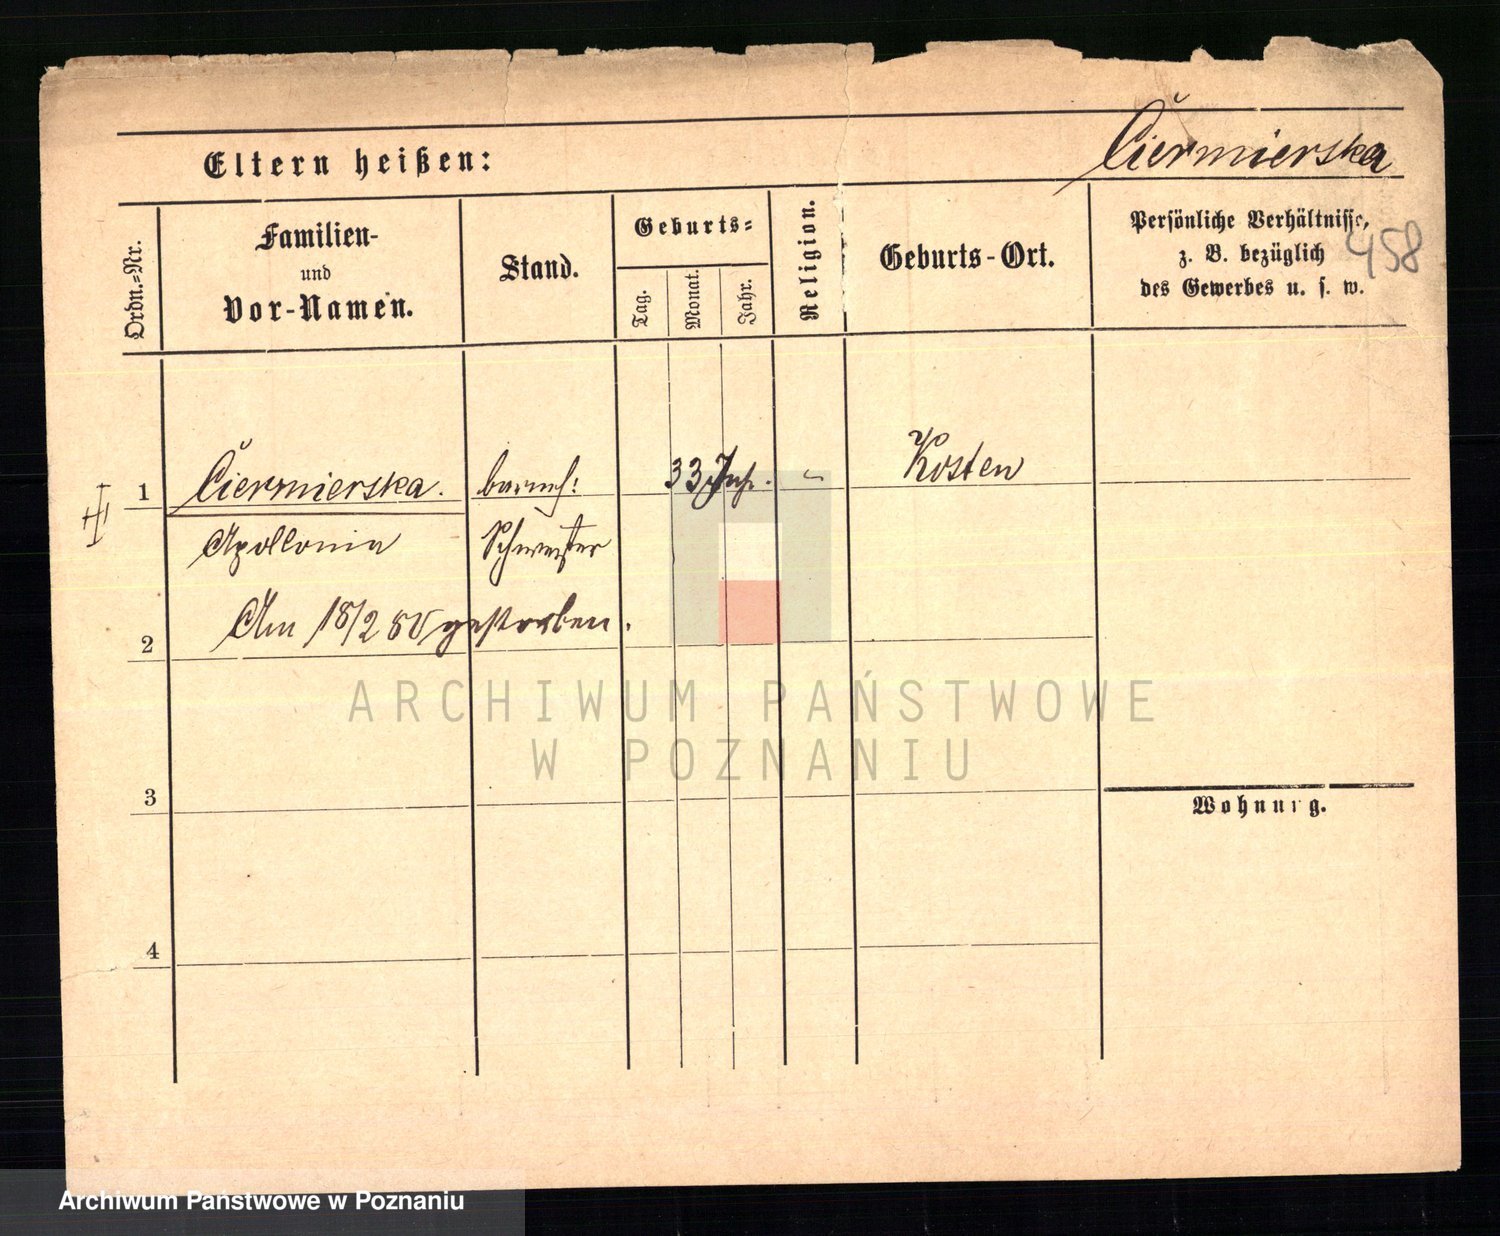 Čiermierska
Eltern heißen:
458
Ordn.=Nr.
Familien-
und
Vor-Namen.
Stand.
Geburts=
Tag.
Monat.
Jahr.
Religion.
Geburts-Ort.
Persönliche Verhältnisse,
z. B. bezüglich
des Gewerbes u. s. w.
1
Čiermierska.
barmh:
33 Jah.
Kosten
Apollonia
Schwester
2
Am 18/2 80 gestorben.
3
Wohnung.
4
ARCHIWUM PAŃSTWOWE
W POZNANIU
Archiwum Państwowe w Poznaniu